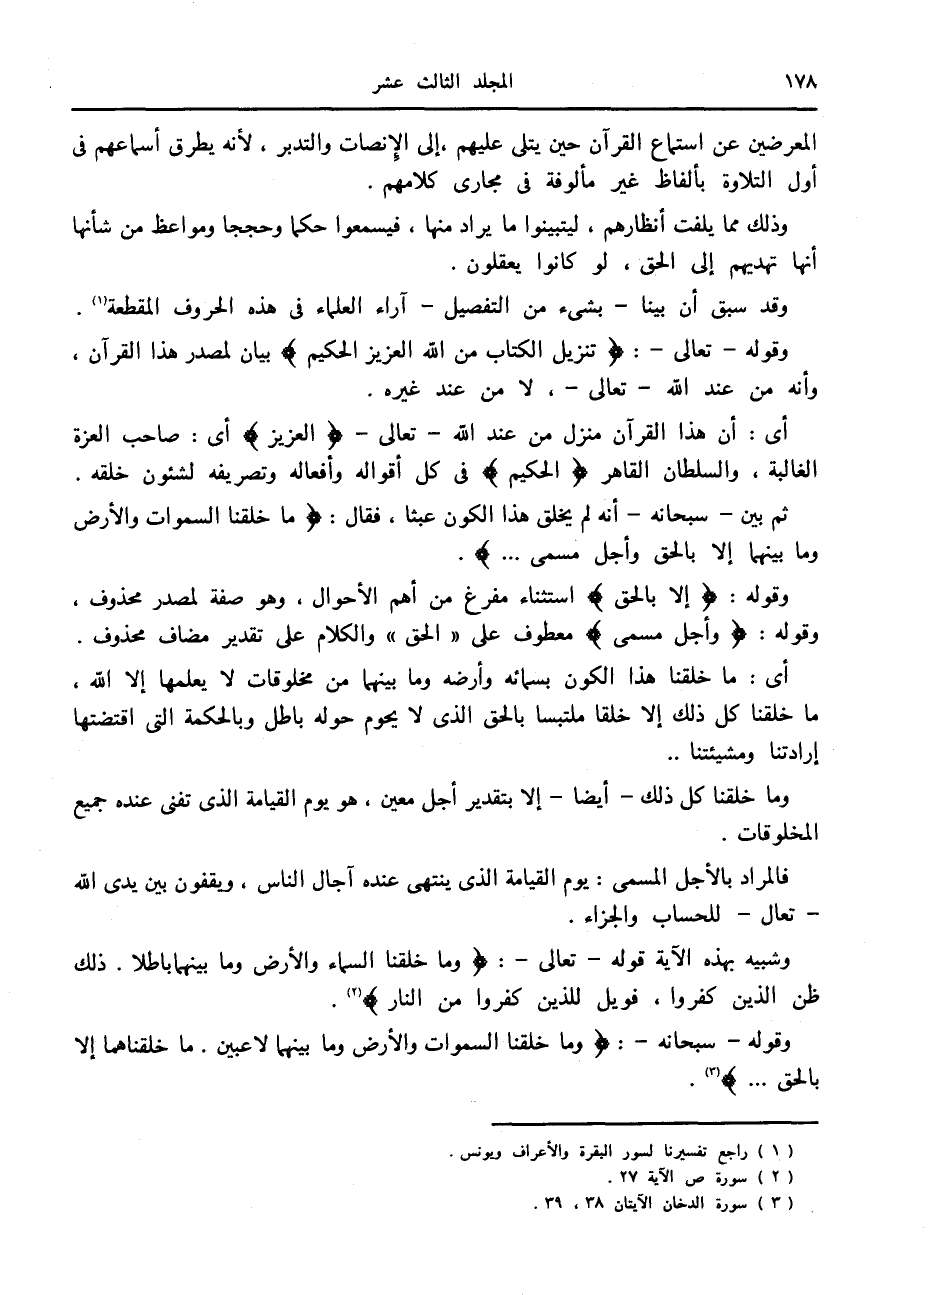 ١٧٨ المجلد الثالث عشر
المعرضين عن استماع القرآن حين يتلى عليهم ،إلى الإنصات والتدبر ، لأنه يطرق أسماعهم فى
أول التلاوة بألفاظ غير مألوفة فى مجارى كلامهم .
وذلك مما يلفت أنظارهم ، ليتبينوا ما يراد منها ، فيسمعوا حكما وحججا ومواعظ من شأنها
أنها تهديهم إلى الحق ، لو كانوا يعقلون .
وقد سبق أن بينا – بشىء من التفصيل – آراء العلماء فى هذه الحروف المقطعة(١) .
وقوله – تعالى – : ﴿ تنزيل الكتاب من الله العزيز الحكيم ﴾ بيان لمصدر هذا القرآن ،
وأنه من عند الله – تعالى – ، لا من عند غيره .
أى : أن هذا القرآن منزل من عند الله – تعالى – ﴿ العزيز ﴾ أى : صاحب العزة
الغالبة ، والسلطان القاهر ﴿ الحكيم ﴾ فى كل أقواله وأفعاله وتصريفه لشئون خلقه .
ثم بين – سبحانه – أنه لم يخلق هذا الكون عبثا ، فقال : ﴿ ما خلقنا السموات والأرض
وما بينهما إلا بالحق وأجل مسمى ... ﴾ .
وقوله : ﴿ إلا بالحق ﴾ استثناء مفرغ من أهم الأحوال ، وهو صفة لمصدر محذوف ،
وقوله : ﴿ وأجل مسمى ﴾ معطوف على « الحق » والكلام على تقدير مضاف محذوف .
أى : ما خلقنا هذا الكون بسمائه وأرضه وما بينهما من مخلوقات لا يعلمها إلا الله ،
ما خلقنا كل ذلك إلا خلقا ملتبسا بالحق الذى لا يحوم حوله باطل وبالحكمة التى اقتضتها
إرادتنا ومشيئتنا ..
وما خلقنا كل ذلك – أيضا – إلا بتقدير أجل معين ، هو يوم القيامة الذى تفنى عنده جميع
المخلوقات .
فالمراد بالأجل المسمى : يوم القيامة الذى ينتهى عنده آجال الناس ، ويقفون بين يدى الله
– تعال – للحساب والجزاء .
وشبيه بهذه الآية قوله – تعالى – : ﴿ وما خلقنا السماء والأرض وما بينهماباطلا . ذلك
ظن الذين كفروا ، فويل للذين كفروا من النار ﴾(٢) .
وقوله – سبحانه – : ﴿ وما خلقنا السموات والأرض وما بينهما لاعبين . ما خلقناهما إلا
بالحق ... ﴾(٣) .
( ١ ) راجع تفسيرنا لسور البقرة والأعراف ويونس .
( ٢ ) سورة ص الآية ٢٧ .
( ٣ ) سورة الدخان الآيتان ٣٨ ، ٣٩ .